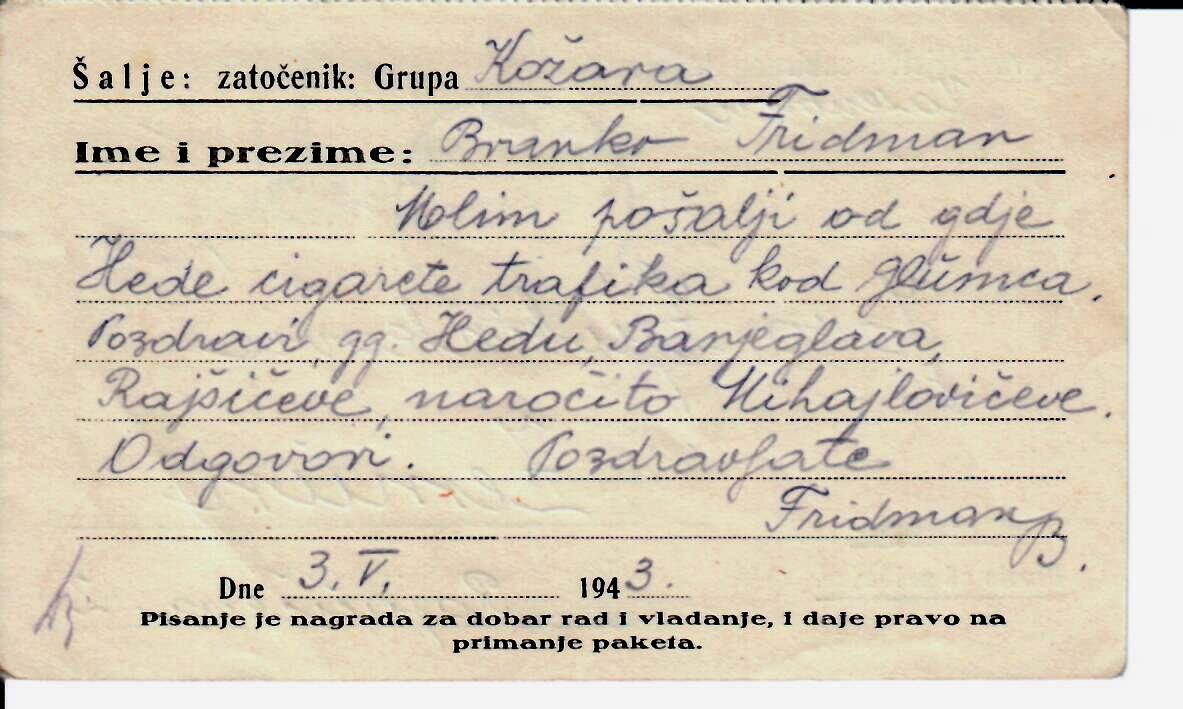 Šalje: zatočenik: Grupa Kožara
Ime i prezime: Branko Fridman
Molim pošalji od gdje
Hede cigarete trafika kod Glumca.
Pozdravi gg. Hedu, Banjeglava,
Rajšićeve, naročito Mihajlovićeve.
Odgovori. Pozdravljate
Fridman B.
Dne 3. V. 1943.
Pisanje je nagrada za dobar rad i vladanje, i daje pravo na
primanje paketa.